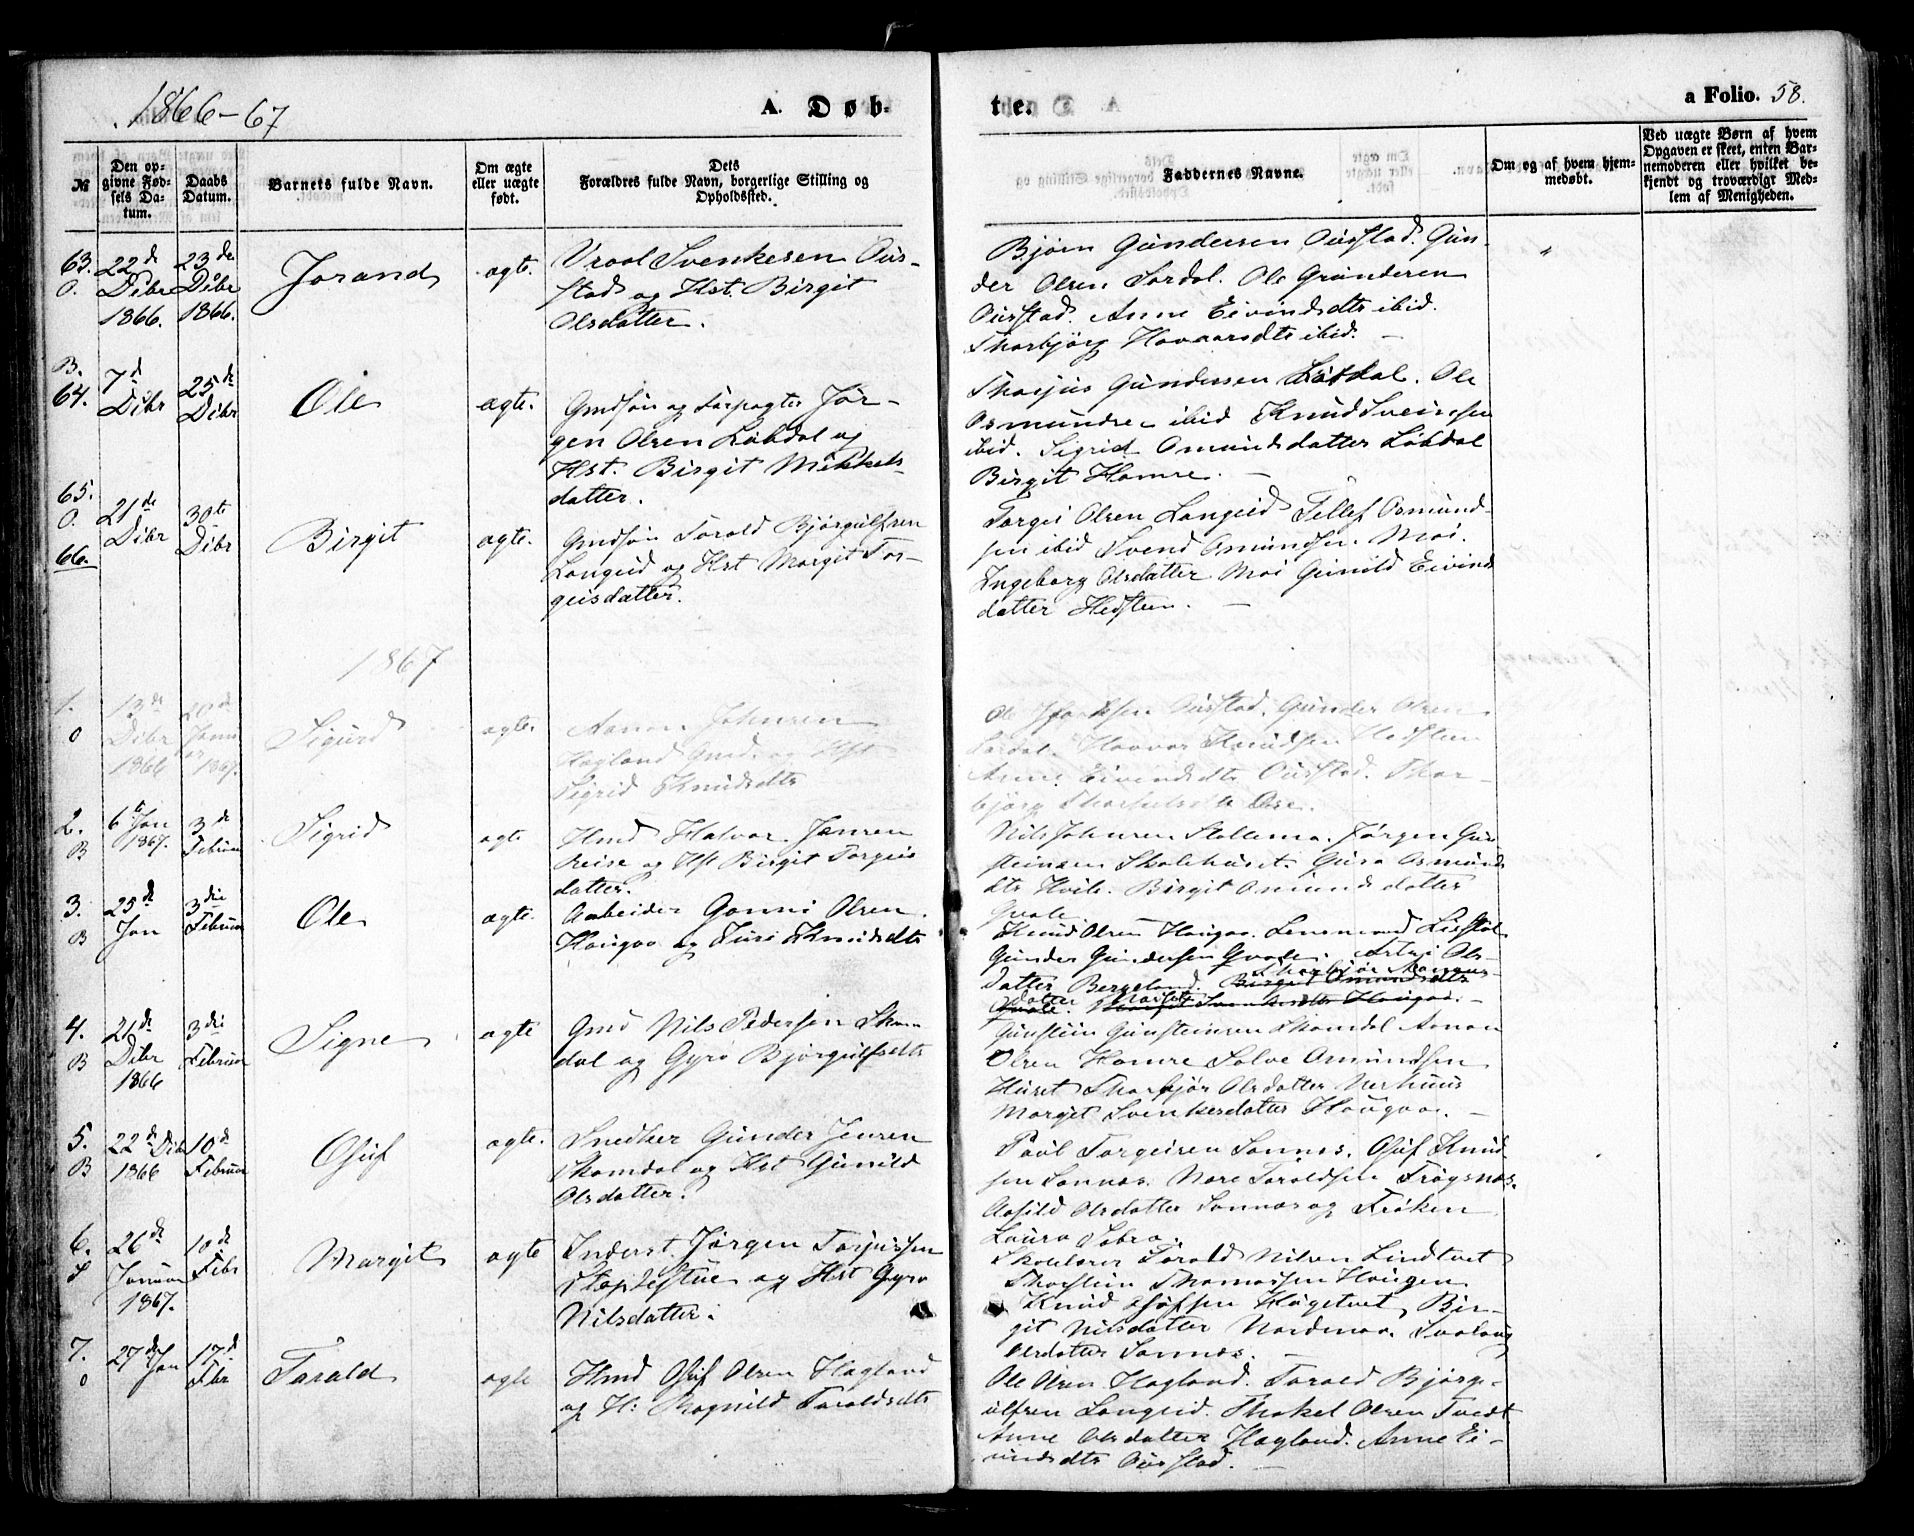 1866-67
A. Døb-
te.
a Folio. 58.
№
Den op-
givne Fød-
sels Da-
tum.
Daabs
Datum.
Barnets fulde Navn.
Om ægte
eller uægte
født.
Dets
Forældres fulde Navn, borgerlige Stilling og
Opholdssted.
Faddernes Navne.
Om og af hvem hjem-
medøbt.
Ved uægte Børn af hvem
Opgaven er skeet, enten Bar-
nemoderen eller hvilket be-
kjendt og troværdigt Med-
lem af Menigheden.
63.
O.
22d
Dibr
1866.
23de
Dibr
1866.
Jorand
ægte.
Vraal Svenkesen Ous-
stad og Hst. Birgit
Olsdatter.
Bjørn Gundersen Ousstad. Gun-
der Olsen Sordal. Ole Gunderen
Ousstad. Anne Eivindsdtr ibid.
Thorbjørg Hovaarsdtr ibid.
"
B.
64.
7d
Dibr
25de
Dibr
Ole
ægte.
Gmdsøn og Forpagter Jør-
gen Olsen Løbdal og
Hst. Birgit Mikkels-
datter.
Thorjus Gundersen Løbdal. Ole
Osmundsen ibid Knud Sveinsen
ibid. Sigrid Omundsdatter Løbdal
Birgit Homre.
65.
O.
66.
21de
Dibr
30te
Dibr
Birgit
ægte.
Gmdsøn Torald Bjørgulfsen
Langeid og Hst Margit Tor-
geisdatter.
Torgei Olsen Langeid Tellef Osmund-
sen ibid Svend Omundsen Moi.
Ingeborg Olsdatter Moi Gunild Eivinds
datter Hedsteen.
1867
1.
O
13de
Dibr
1866
20de
Janu
ar
1867.
Sigurd
ægte
Aanon Johnsen
Hagland Gmd. og Hst
Sigrid Knudsdtr
Ole Ousstad. Gunder Olsen
Sordal. Haavor Knudsen Hedsteen
Anne Eivindsdtr Ousstad. Thor-
bjørg Ose.
2.
B
6te Jan
1867.
3de
Februar
Sigrid
ægte
Hmd Halvor Jensen
Reise og Hst Birgit Torgeis
datter.
Nils Johnsen Stallemo. Jørgen Gun
steinsen Skolehuset. Guro Osmunds
dtr Hvile. Birgit Omundsdatter
Qvale.
3.
B
25de
Jan
3die
Februar
Ole
ægte.
Arbeider Gonni Olsen
Hougaa og Turi Knudsdtr
Knud Olsen Hougaa. Lensmand Lidtstøl
Gunder Gundersen Qvale. Ols-
datter Bergeland.
4.
B
21de
Dibr
1866
3die
Februar
Signe
ægte
Gmd Nils Pedersen Skom
dal og Gyro Bjørgulfsdtr
Gunstein Gunsteinsen Skomdal Aanon
Olsen Homre Salve Osmundsen
Huset Thorbjør Olsdatter Nerhuus
Margit Svenkesdatter Hougaa.
5.
B
22de Dibr
1866
10de
Februar
Osuf
ægte.
Snedker Gunder Jensen
Skomdal og Hst Gunild
Olsdatter.
Paul Torgeisen Sannes. Osuf Knud
sen Sannes. Nore Taraldsen Frøysnæs.
Aasild Olsdatter Sannes og Frøken
Laura Sobra.
6.
26de
Januar
1867.
10de
Febr
Margit
ægte
Inderst. Jørgen Torjussen
og Hst Gyro
Nilsdatter.
Skolelærer Torald Nilsen Lindtvet
Thorstein Thomassen Haugen
Knud Osufsen Hagetvet, Bir-
git Nilsdatter Nordmoe. Svalaug
Olsdatter Sannæs.
7.
O
27de Jan
17de
Febr
Tarald
ægte
Hmd Osuf Olsen Hagland
og H: Ragnild Taraldsdtr
Ole Olsen Hagland. Torald Bjørg-
ulfsen Langeid. Thokel Olsen Tvedt
Anne Olsdatter Hagland. Anne Ei-
vindsdtr Ousstad.